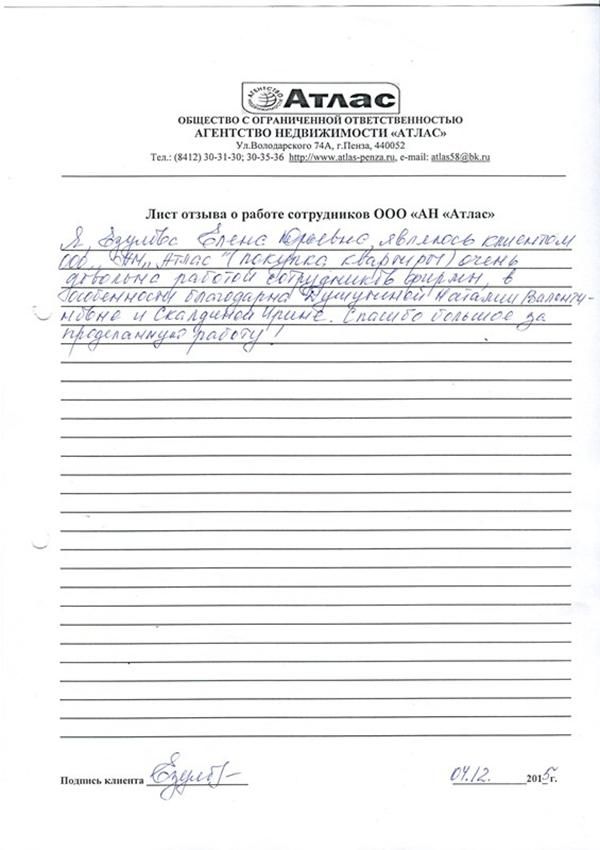 АГЕНТСТВО НЕДВИЖИМОСТИ
Атлас
ОБЩЕСТВО С ОГРАНИЧЕННОЙ ОТВЕТСТВЕННОСТЬЮ
АГЕНТСТВО НЕДВИЖИМОСТИ «АТЛАС»
Ул.Володарского 74А, г.Пенза, 440052
Тел.: (8412) 30-31-30; 30-35-36 http://www.atlas-penza.ru, e-mail: atlas58@bk.ru
Лист отзыва о работе сотрудников ООО «АН «Атлас»
Я, Елена Юрьевна, являюсь клиентом
ООО "АН "Атлас" (покупка квартиры) очень
довольна работой сотрудников фирмы, в
особенности благодарна Наталии Валенти-
новне и Скалдиной Ирине. Спасибо большое за
проделанную работу!
Подпись клиента
04.12. 2015г.